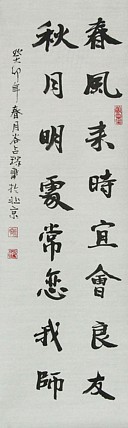 春風来時宜會良友
秋月明處常戀我師
癸卯年春月谷占琛書於北京